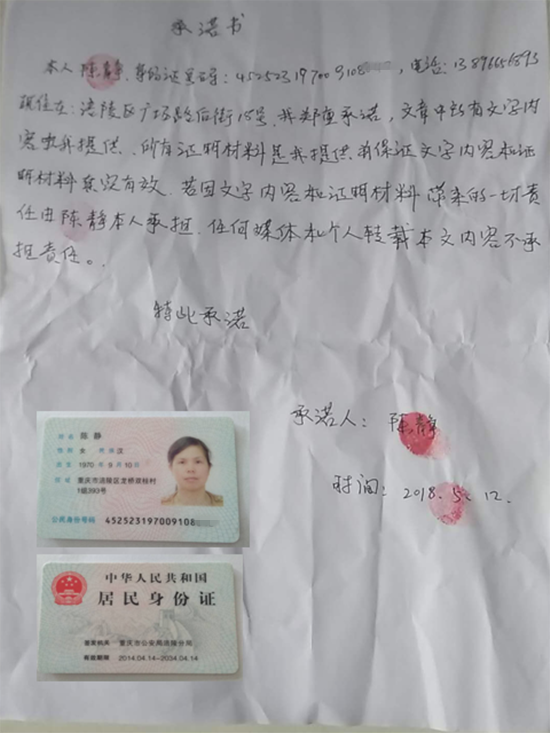 承诺书
本人陈静,身份证号码:452523197009108 ,电话:
现住在:涪陵区广场路后街15号。我郑重承诺,文章中所有文字内
容由我提供、所有证明材料是我提供并保证文字内容和证
明材料真实有效。若因文字内容和证明材料带来的一切责
任由陈静本人承担.任何媒体和个人转载本文内容不承
担责任。
特此承诺
承诺人:陈静
时间:2018.5.12.
姓名 陈静
性别 女 民族 汉
出生 1970 年 9 月 10 日
住址 重庆市涪陵区龙桥双桂村
1组393号
公民身份号码 452523197009108
中华人民共和国
居民身份证
签发机关 重庆市公安局涪陵分局
有效期限 2014.04.14-2034.04.14